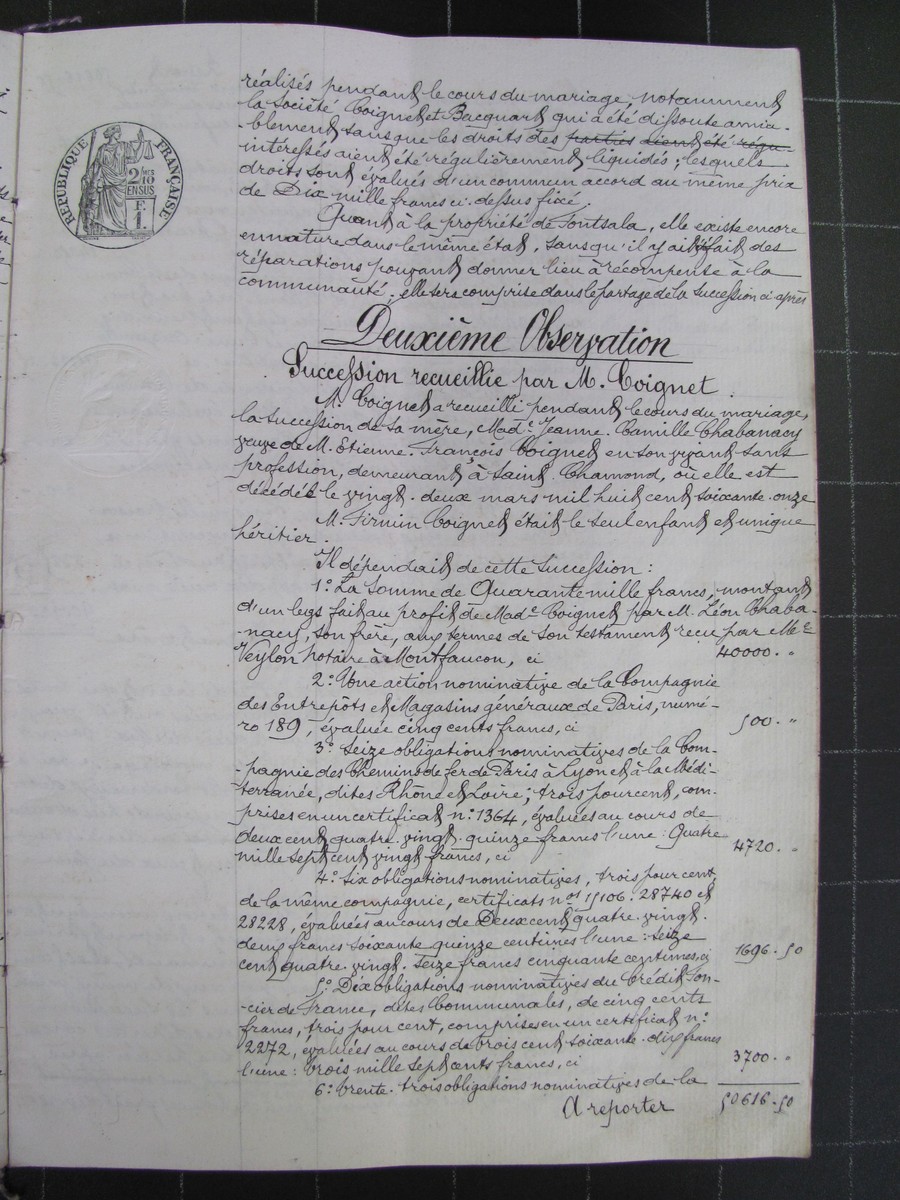 RÉPUBLIQUE FRANÇAISE
2/10 EN SUS
F
1.
réalisés pendant le cours du mariage, notamment
la Société Coignet et Bacquart qui a été dissoute amia-
-blement, sans que les droits des parties aient été régu-
intéressés aient été régulièrement liquidés; lesquels
droits sont évalués d'un commun accord au même prix
de Dix mille francs ci-dessus fixé.
Quant à la propriété de Fontsala, elle existe encore
en nature dans le même état, sans qu'il y ait fait des
réparations pouvant donner lieu à récompense à la
communauté; elle sera comprise dans le partage de la succession ci après
Deuxième Observation
Succession recueillie par M. Coignet.
M. Coignet a recueilli pendant le cours du mariage,
la succession de sa mère, Made Jeanne-Camille Chabanacy
veuve de M. Etienne-François Coignet en son vivant sans
profession, demeurant à Saint-Chamond, où elle est
décédée le vingt-deux mars mil huit cent soixante-onze
M. Firmin Coignet était le seul enfant et unique
héritier.
Il dépendait de cette succession:
1o La somme de Quarante mille francs, montant
d'un legs fait au profit de Made Coignet par M. Léon Chaba-
-nacy, son frère, aux termes de son testament reçu par Me
Veylon notaire à Montfaucon, ci 40000. "
2o Une action nominative de la Compagnie
des Entrepôts et Magasins généraux de Paris, numé-
ro 189, évaluée cinq cents francs, ci 500. "
3o Seize obligations nominatives de la Com-
-pagnie des Chemins de fer de Paris à Lyon et à la Médi-
-terranée, dites Rhône et Loire; trois pour cent, com-
prises en un certificat no 1364, évaluées au cours de
deux cent quatre-vingt-quinze francs l'une: Quatre
mille sept cent vingt francs, ci 4720. "
4o Six obligations nominatives, trois pour cent
de la même compagnie, certificats nos 15106. 28740 et
28228, évaluées au cours de Deux cent quatre-vingt-
deux francs soixante quinze centimes l'une: Seize
cent quatre-vingt-seize francs cinquante centimes, ci 1696.50
5o Dix obligations nominatives du Crédit Fon-
-cier de France, dites Communales, de cinq cents
francs, trois pour cent, comprises en un certificat no
2272, évaluées au cours de trois cent soixante-dix francs
l'une: Trois mille sept cents francs, ci 3700. "
6o Trente-trois obligations nominatives de la
A reporter 50616.50